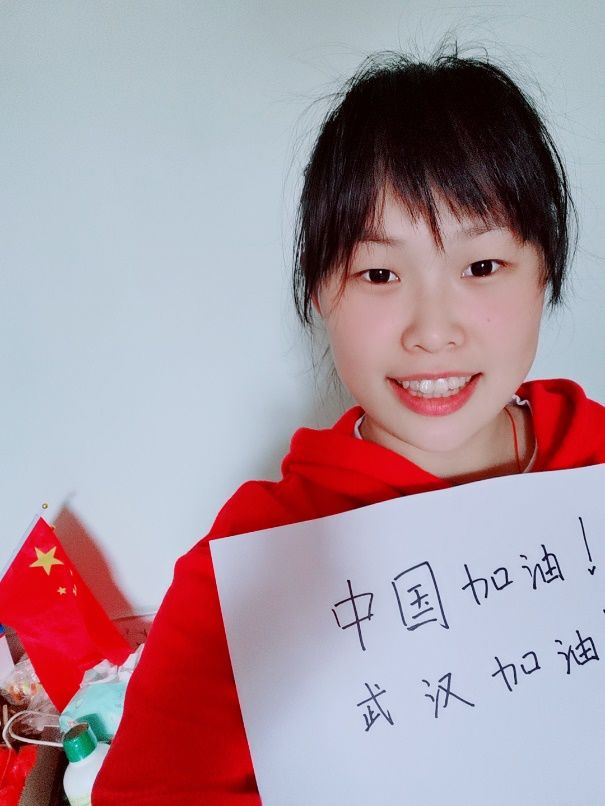 中国加油！
武汉加油